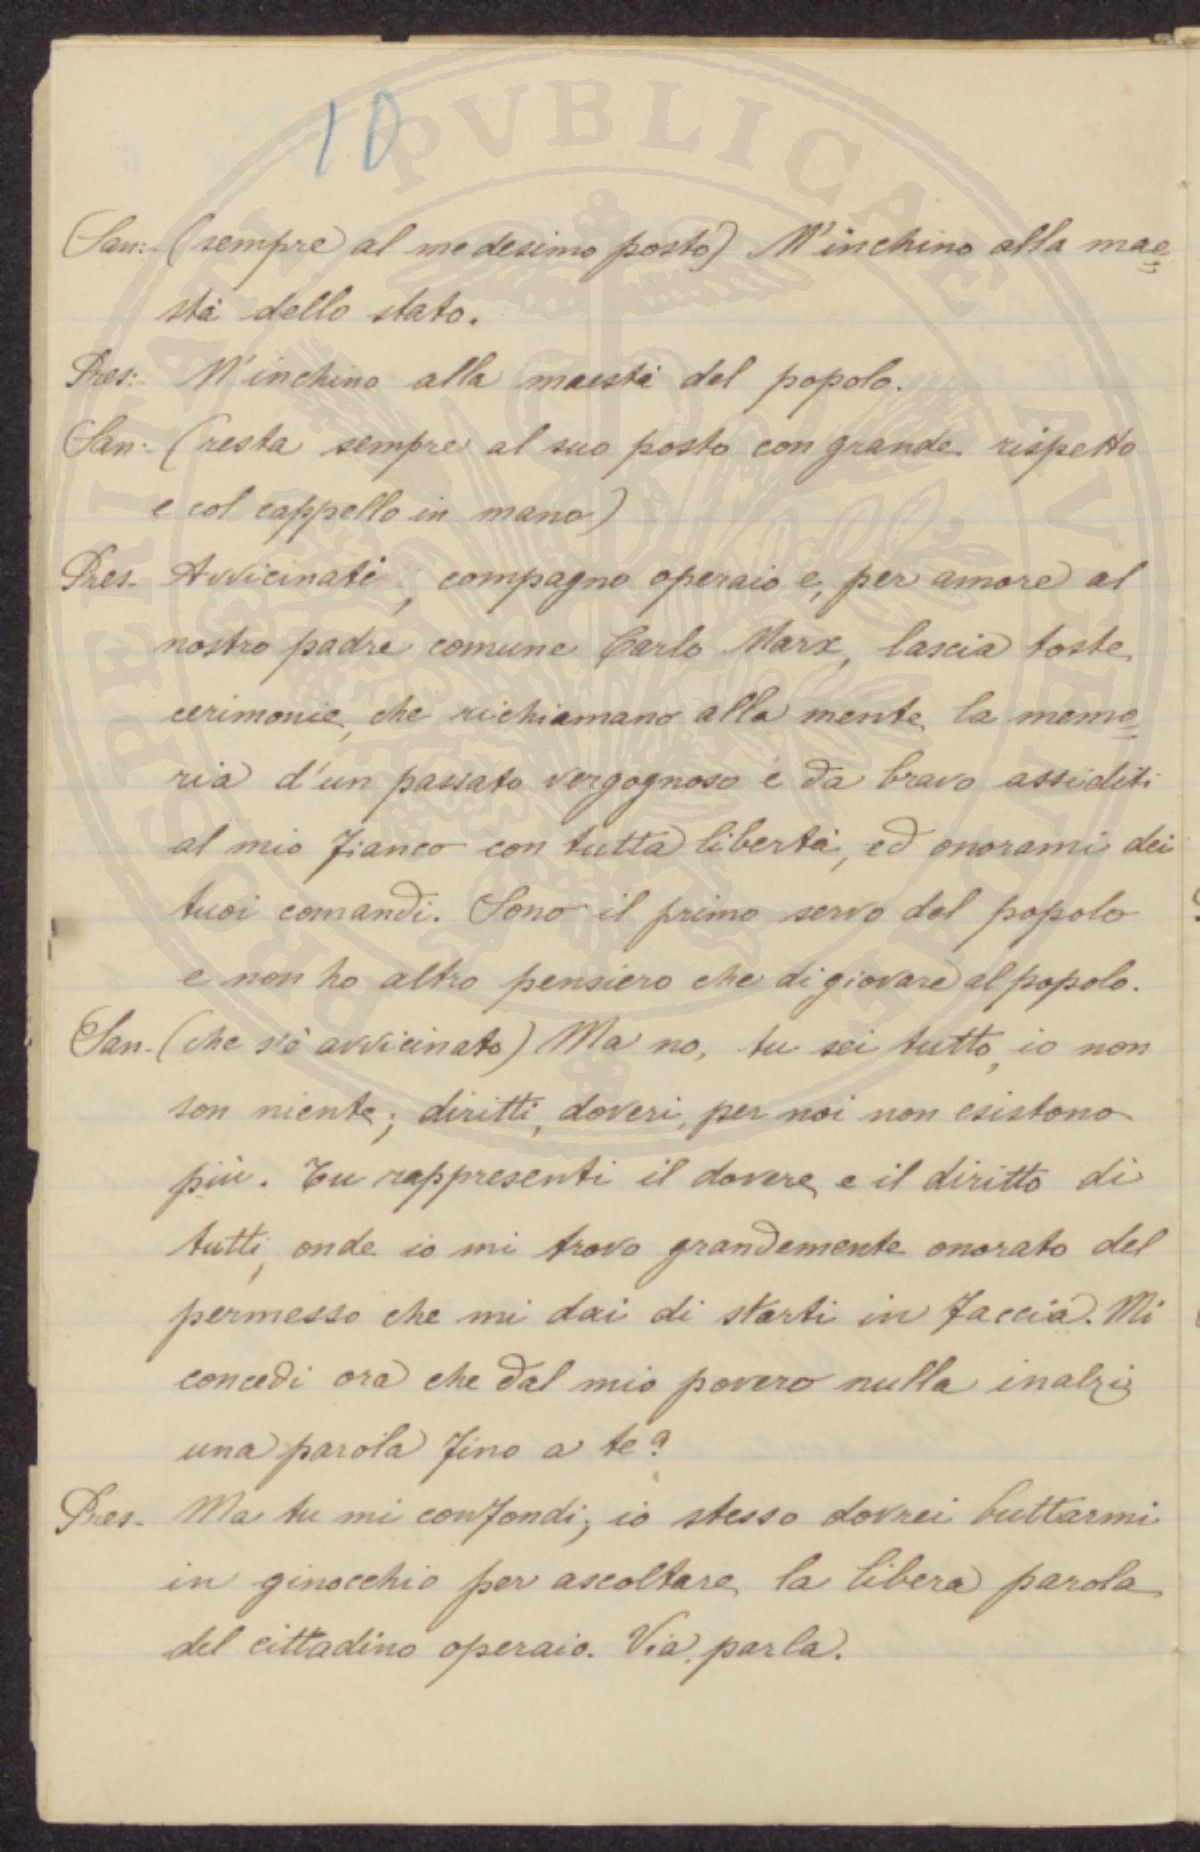 10
San:- (sempre al medesimo posto) M'inchino alla mae=
stà dello stato.
Pres:- M'inchino alla maestà del popolo.
San:- (resta sempre al suo posto con grande rispetto
e col cappello in mano)
Pres- Avvicinati, compagno operaio e, per amore al
nostro padre comune Carlo Marx, lascia toste
cerimonie, che richiamano alla mente la memo=
ria d'un passato vergognoso e da bravo assiditi
al mio fianco con tutta libertà, ed onorami dei
tuoi comandi. Sono il primo servo del popolo
e non ho altro pensiero che di giovare al popolo.
San- (che s'è avvicinato) Ma no, tu sei tutto, io non
son niente; diritti, doveri, per noi non esistono
più. Tu rappresenti il dovere e il diritto di
tutti, onde io mi trovo grandemente onorato del
permesso che mi dai di starti in faccia. Mi
concedi ora che dal mio povero nulla inalzi
una parola fino a te?
Pres- Ma tu mi confondi; io stesso dovrei buttarmi
in ginocchio per ascoltare la libera parola
del cittadino operaio. Via, parla.
PROSPERITATI PVBLICAE AVGENDAE